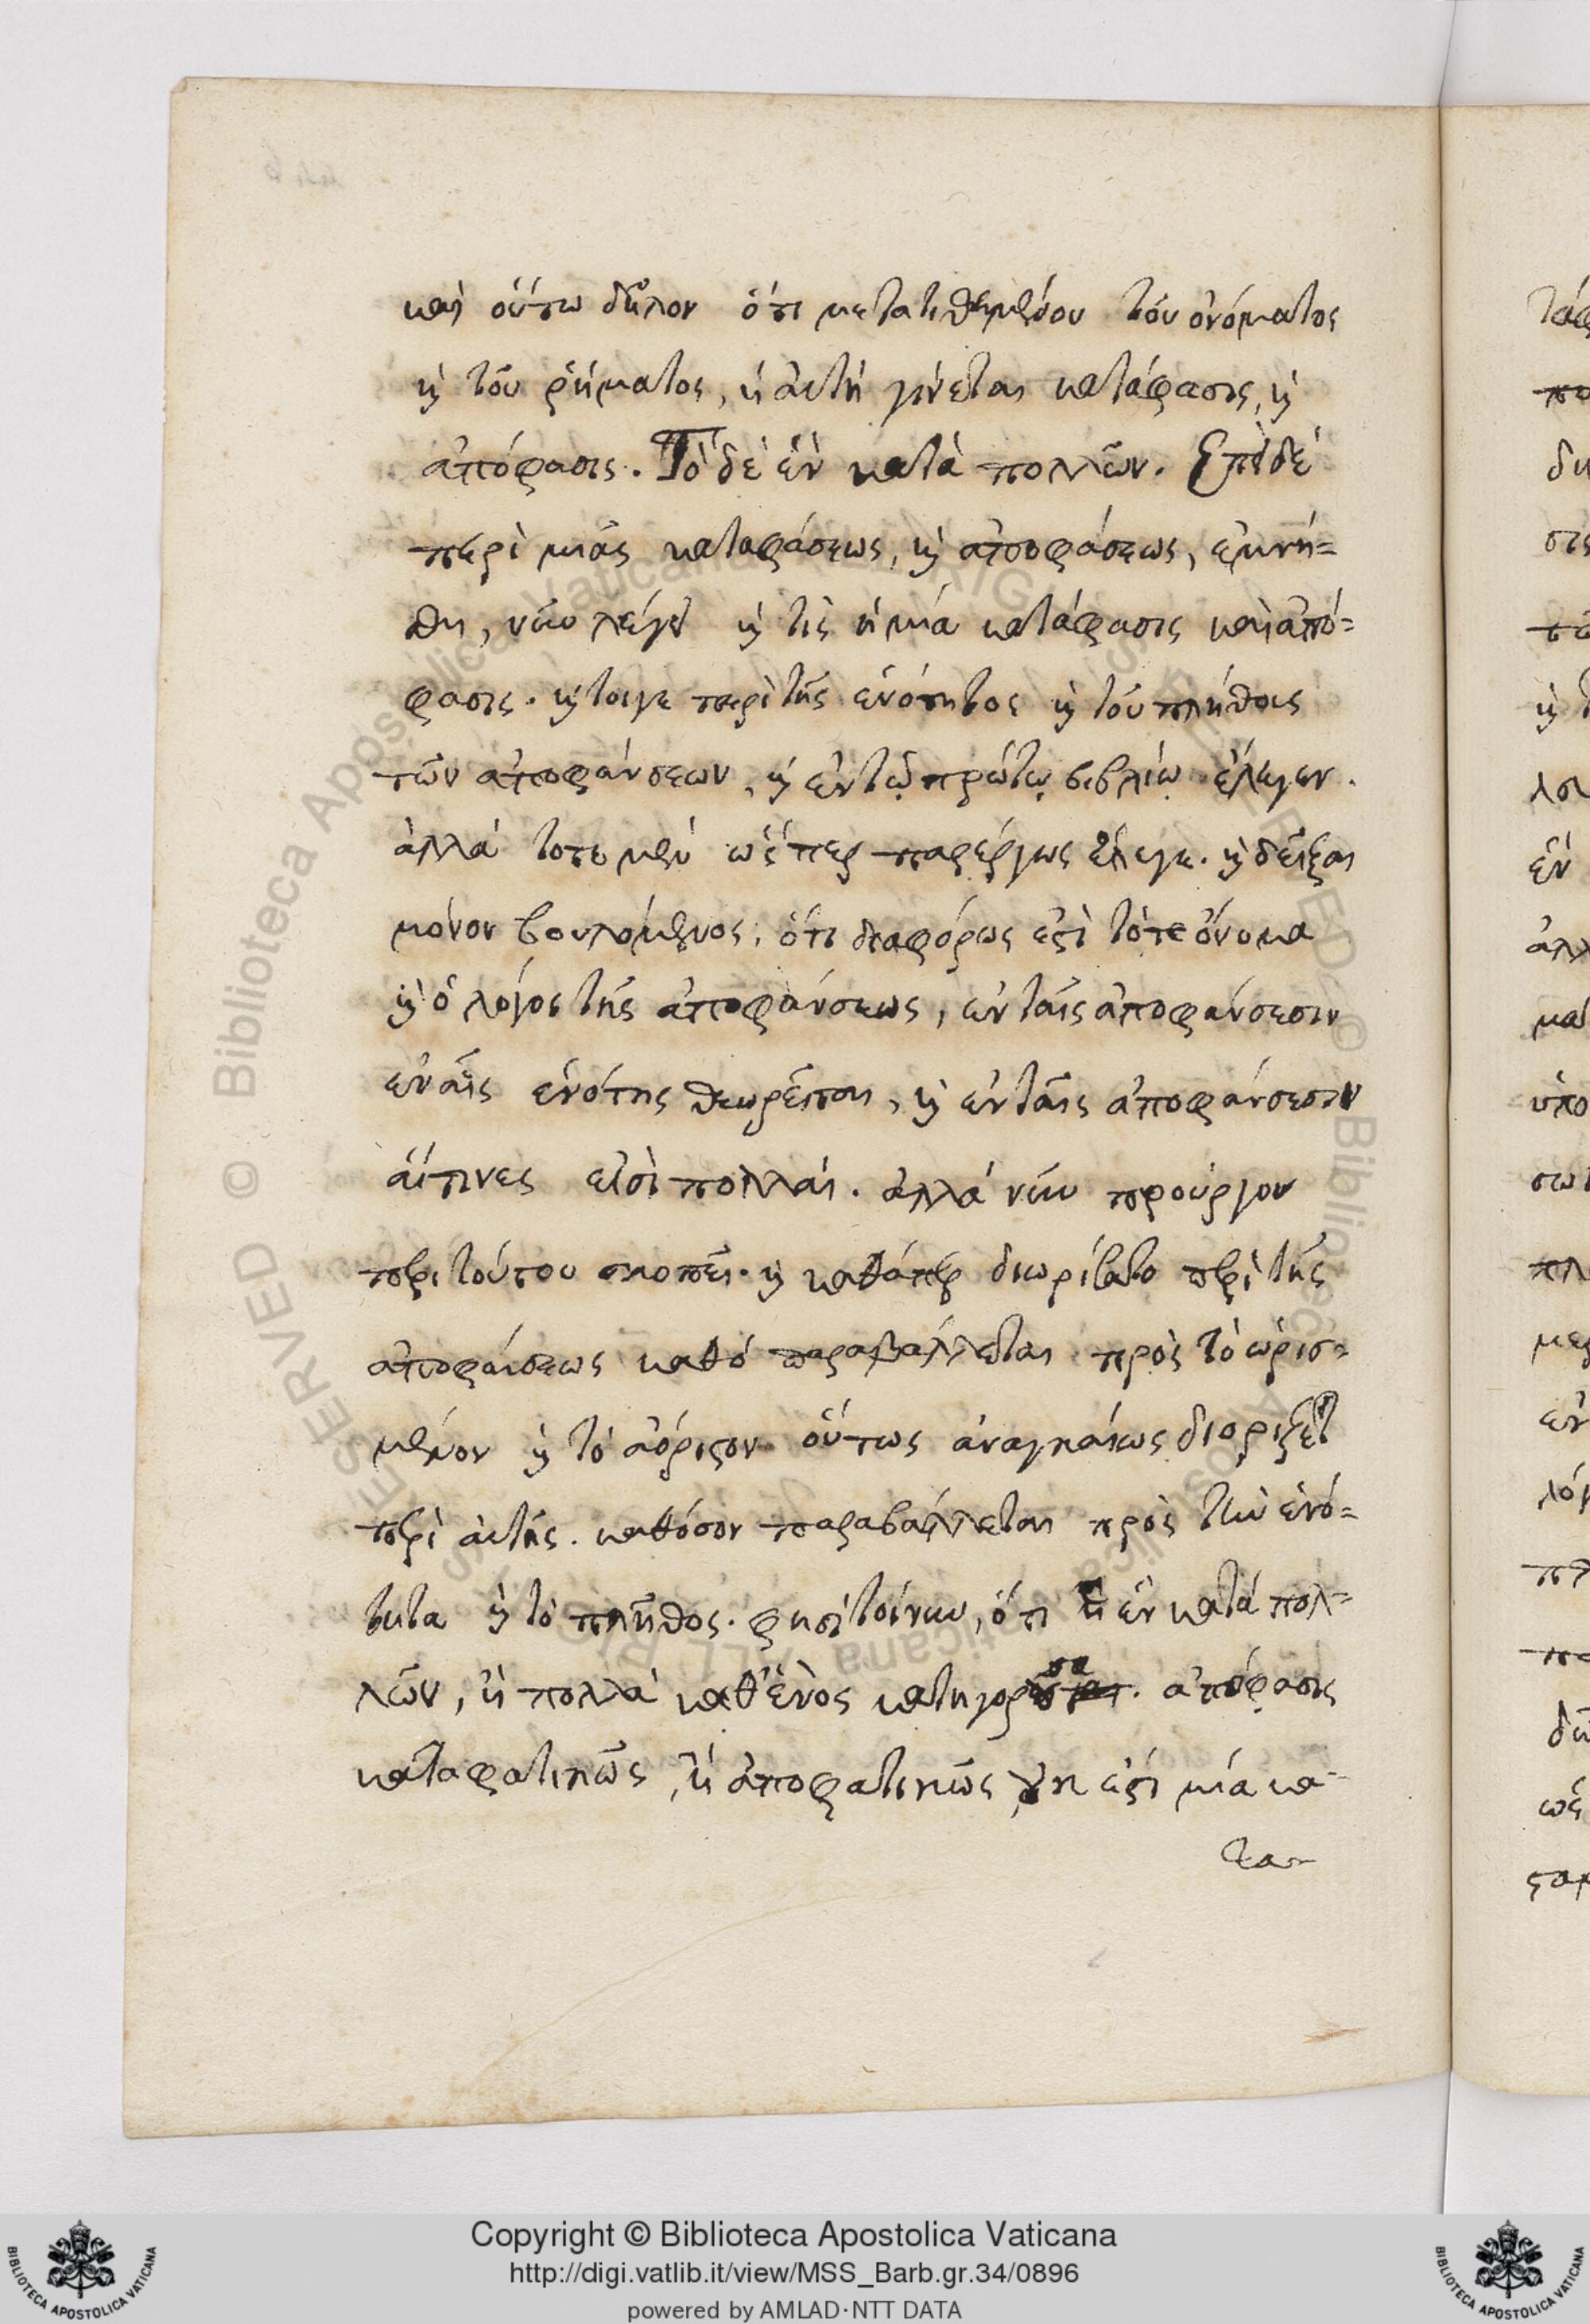 καὶ οὕτω δῆλον ὅτι μετατιθεμένου τοῦ ὀνόματος
καὶ τοῦ ῥήματος, ἡ αὐτὴ γίνεται κατάφασις, καὶ
ἀπόφασις. Τὸ δὲ ἓν κατὰ πολλῶν. Ἐπεὶ δὲ
περὶ μιᾶς καταφάσεως, καὶ ἀποφάσεως, ἐμνή=
θη, νῦν λέγει καὶ τὶς ἡ μία κατάφασις καὶ ἀπό=
φασις. καίτοιγε περὶ τῆς ἑνότητος καὶ τοῦ πλήθους
τῶν ἀποφάνσεων, καὶ ἐν τῷ πρώτῳ βιβλίῳ ἔλεγεν.
ἀλλὰ τότε μὲν ὥσπερ παρέργως ἔλεγε. καὶ δεῖξαι
μόνον βουλόμενος, ὅτι διαφόρως ἐστὶ τότε ὄνομα
καὶ ὁ λόγος τῆς ἀποφάνσεως, ἐν ταῖς ἀποφάνσεσιν
ἐν αἷς ἑνότης θεωρεῖται, καὶ ἐν ταῖς ἀποφάνσεσιν
αἵτινες εἰσὶ πολλαί. ἀλλὰ νῦν προύργου
περὶ τούτου σκοπεῖ. καὶ καθάπερ διωρίσατο περὶ τῆς
ἀποφάνσεως καθὸ παραβάλλεται πρὸς τὸ ὡρισ=
μένον καὶ τὸ ἀόριστον οὕτως ἀναγκαίως διορίζει
περὶ αὐτῆς. καθόσον παραβάλλεται πρὸς τὴν ἑνό=
τητα καὶ τὸ πλῆθος. φησὶ τοίνυν, ὅτι ἡ ἓν κατὰ πολ=
λῶν, ἢ πολλὰ καθ' ἑνὸς κατηγοροῦσα. ἀπόφασις
καταφατικῶς, ἢ ἀποφατικῶς, οὐκ ἐστὶ μία κα-
τα-
Copyright © Biblioteca Apostolica Vaticana
http://digi.vatlib.it/view/MSS_Barb.gr.34/0896
powered by AMLAD·NTT DATA